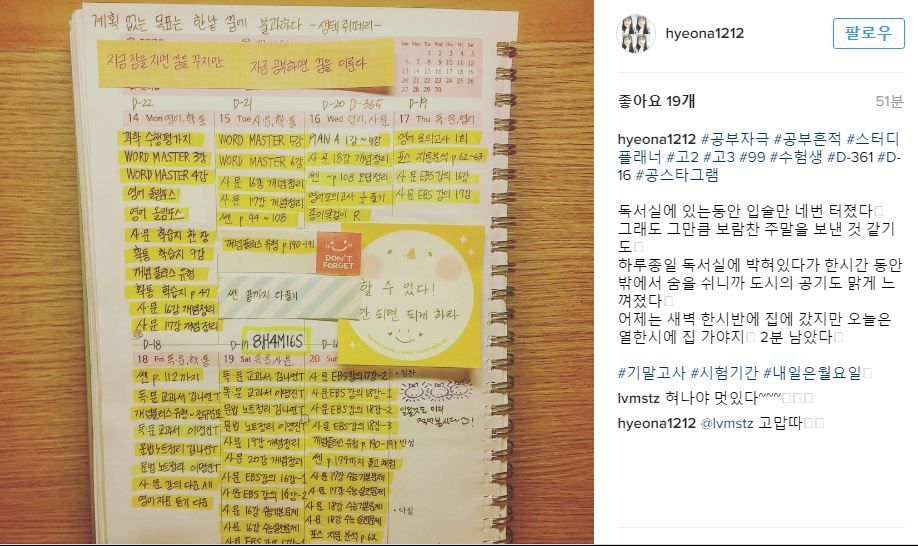 계획 없는 목표는 한낱 꿈에 불과하다 -생텍쥐페리-
지금 잠을 자면 꿈을 꾸지만 지금 공부하면 꿈을 이룬다
Sun Mon Tue Wed Thu Fri Sat
1 2 3 4 5
6 7 8 9 10 11 12
13 14 15 16 17 18 19
20 21 22 23 24 25 26
27 28 29 30
D-22 D-21 D-20 D-365 D-19
14 Mon 영어, 확통
과학 수행평가지
WORD MASTER 3강
WORD MASTER 4강
영어 올림포스
영어 올림포스
사문 학습지 한 장
확통 학습지 9강
개념플러스 유형
확통 학습지 p.47
사문 16강 개념정리
사문 17강 개념정리
15 Tue 사문, 확통
WORD MASTER 5강
WORD MASTER 6강
사문 16강 개념정리
사문 17강 개념정리
쎈 p.99~108
개념플러스 유형 p.190-191
16 Wed 영어, 사문
PLAN A 1강~4강
사문 18강 개념정리
쎈 ~p.108 오답정리
영어모의고사
종이접기 R
17 Thu 독문, 영어
영어 모의고사 1회
포스 지문분석 p.62~63
사문 EBS 강의 16강
사문 EBS 강의 17강
DON'T FORGET
쎈 끝까지 다 풀기
할 수 있다!
간 되면 되게 하라
8H4M16S
D-18
18 Fri 독문, 확통
쎈 p.112까지
독문 교과서 김나연T
개념플러스유형
독문 교과서 이영전T
문법 노트정리 김나연T
문법 노트정리 이영전T
사문 강의 다운 All
영어 지문 듣기 다운
19 Sat 독문, 사문
독문 교과서 김나연T
독문 교과서 이영전T
문법 노트정리 김나연T
문법 노트정리 이영전T
사문 19강 개념정리
사문 20강 개념정리
사문 EBS 강의 16강-1
사문 EBS 강의 16강-2
사문 16강 수능기본문제
사문 16강 수능실전문제
사문 EBS 강의 17강-1
20 Sun
사문 EBS강의17강-2
사문 EBS강의 18강-1
사문 EBS강의 18강-2
사문 EBS강의 18강-3
개념플러스 유형 p.190-194
쎈 p.179까지 풀고 채점
사문 17강 수능기본문제
사문 17강 수능실전문제
사문 18강 수능기본문제
사문 18강 수능실전문제
포스 지문 분석 p.62
• 칭찬
• 반성
• 다짐
hyeona1212
팔로우
좋아요 19개
51분
hyeona1212 #공부자극 #공부흔적 #스터디
플래너 #고2 #고3 #99 #수험생 #D-361 #D-
16 #공스타그램
독서실에 있는동안 입술만 네번 터졌다
그래도 그만큼 보람찬 주말을 보낸 것 같기
도
하루종일 독서실에 박혀있다가 한시간 동안
밖에서 숨을 쉬니까 도시의 공기도 맑게 느
껴졌다
어제는 새벽 한시반에 집에 갔지만 오늘은
열한시에 집 가야지 2분 남았다
#기말고사 #시험기간 #내일은월요일
lvmstz 혀나야 멋있다~~~
hyeona1212 @lvmstz 고맙따